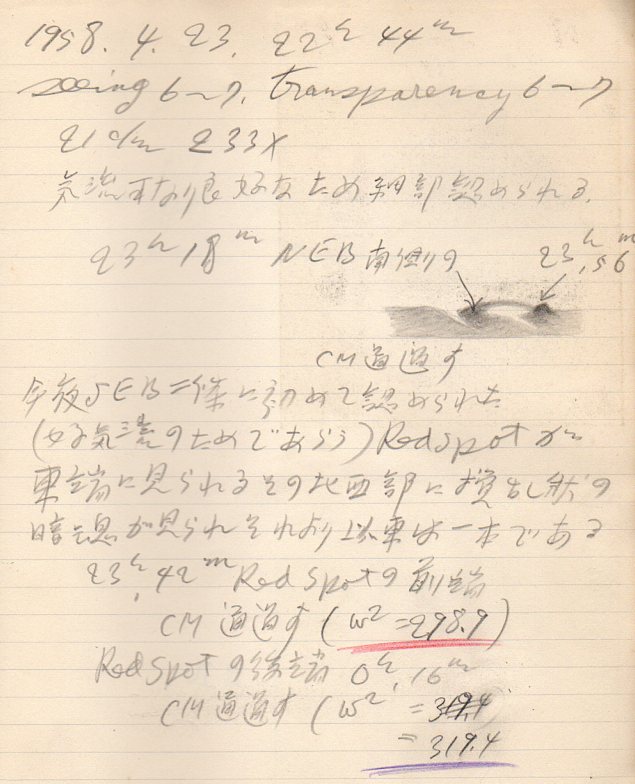 1958. 4. 23. 22h 44m
seeing 6~7, transparency 6~7
21cm 233x
気流可なり良好なため細部認められる.
23h 18m NEB南側の 23h.56m
CM通過す
今夜SEB二条に初めて認められた
(好気流のためであらう) Red Spotが
東端に見られるその北西部に 状の
暗 が見られそれより以東は一本である
23h.42m Red Spotの前端
CM通過す (w2 = 298.9)
Red Spotの後端 0h.16m
CM通過す (w2 = 319.4
= 319.4